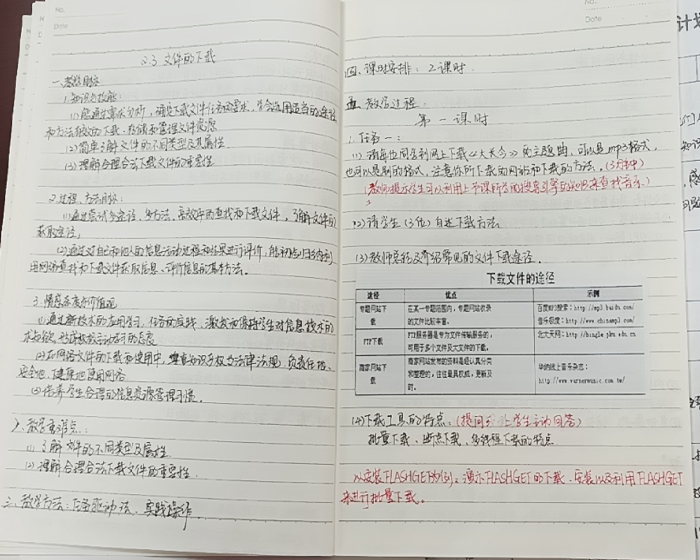 No.
Date
2.3 文件的下载
一、教学目标
1.知识与技能:
(1)能通过需求分析,确定下载文件任务的要求,学会选用适当的途径
和方法下载、存储和管理文件资源
(2)简单了解文件的不同类型及其属性
(3)理解合理合法下载文件的重要性
2.过程、方法目标:
(1)通过尝试多途径、多方法、高效率的查找和下载文件,了解文件的
获取途径。
(2)通过对自己和他人的信息活动过程和结果进行评价,能
用网络查找和下载文件获取信息、评价信息的基本方法。
3.情感态度价值观
(1)通过新技术的应用学习,任务的实践,激发和保持学生对信息技术的
求知欲,
(2)在网络文件的下载和使用中,增强知识产权与法律法规,负责任地、
安全地、健康地使用网络
(3)培养学生合理的信息资源管理习惯。
二、教学重难点:
(1)了解文件的不同类型及属性
(2)理解合理合法下载文件的重要性.
三、教学方法:任务驱动法、实践操作
No.
Date
四、课时安排:2课时
五、教学过程:
第一课时
1.任务一:
(1)请每位同学利用网上下载《大长今》的主题曲,可以是mp3格式,
也可以是别的格式,注意你所下载的网站和下载的方法。(3分钟)
(教师提示学生可以利用上节课所学的搜索引擎的知识来查找音乐)
(2)请学生(3位)自述下载方法
(3)教师总结及介绍常见的文件下载途径.
下载文件的途径
途径 优点 示例
专题网站下载 在某一专题范围内,专题网站收录的文件比较丰富。 百度MP3搜索:http://mp3.baidu.com/
音乐极度:http://www.chinamp3.com/
FTP下载 FTP服务器是专为文件传输服务的,可用于多个文件及大文件的下载。 北大天网:http://bingle.pku.edu.cn
商家网站下载 商家网站发布的资料是经认真分类和整理的,往往最具权威,更新及时。 华纳线上音乐杂志:
http://www.warnermusic.com.tw/
(4)下载工具的特点.(提问让学生主动回答)
批量下载、断点下载、多线程下载的特点
以安装FLASHGET为例,演示FLASHGET的下载、安装以及利用FLASHGET
来进行批量下载。